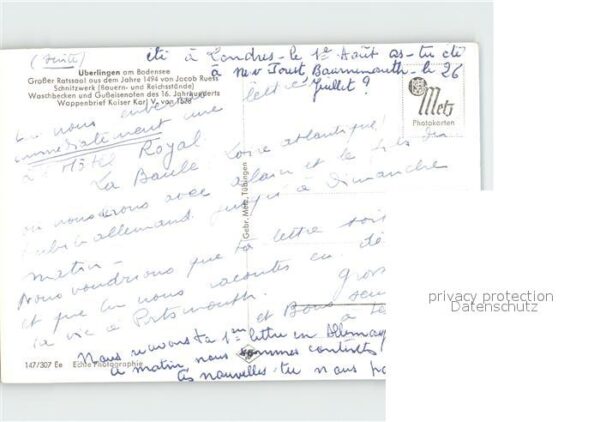 (suite) été à Londres - le 1er Août as-tu été
à New Bournemouth - le 26
Juillet ?
Überlingen am Bodensee
Großer Ratssaal aus dem Jahre 1494 von Jacob Ruess
Schnitzwerk (Bauern- und Reichsstände)
Waschbecken und Gußeisenofen des 16. Jahrhunderts
Wappenbrief Kaiser Karl V. von 1528
Metz
Photokarten
nous lettre
immédiatement une
à l'Hôtel Royal
La Baule Loire atlantique!
nous serons avec Alain et le fils
allemand jusqu'à dimanche
matin -
Nous voudrions que ta lettre soit
et que tu nous racontes en
ta vie à Portsmouth.
gros
et Bons
Nous recevons ta 1ère lettre en Allemag
ce matin nous sommes contents
tes nouvelles. tu nous
Gebr. Metz, Tübingen
147/307 Ee Echte Photographie
privacy protection
Datenschutz